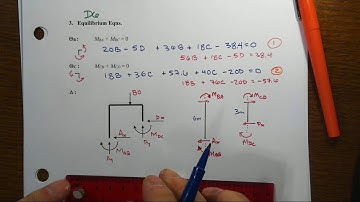 D6
3. Equilibrium Eqns.
θB: MBA + MBC = 0
20B - 5D + 36B + 18C - 38.4 = 0 ①
56B + 18C - 5D = 38.4
θC: MCB + MCD = 0
18B + 36C + 57.6 + 40C - 20D = 0 ②
18B + 76C - 20D = -57.6
Δ:
80
Dx
Ax
MAB
Ay
MDC
Dy
MBA
6m
Ax
MAB
MCD
3m
Dx
MDC